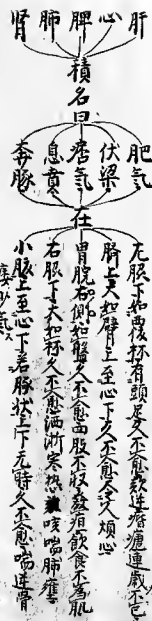 肝心脾肺腎
積名曰
肥氣
伏梁
痞氣
息賁
奔豚
在
左脇下如覆杯有頭足久不愈欬逆痎瘧連歲不已
臍上大如臂上至心下久不愈久煩心
胃脘右側如盤久不愈四肢不收發疸飲食不為肌
右脇下大如杯久不愈洒淅寒熱咳喘肺癰
小腹上至心下若豚狀上下无時久不愈喘逆骨
痿少氣